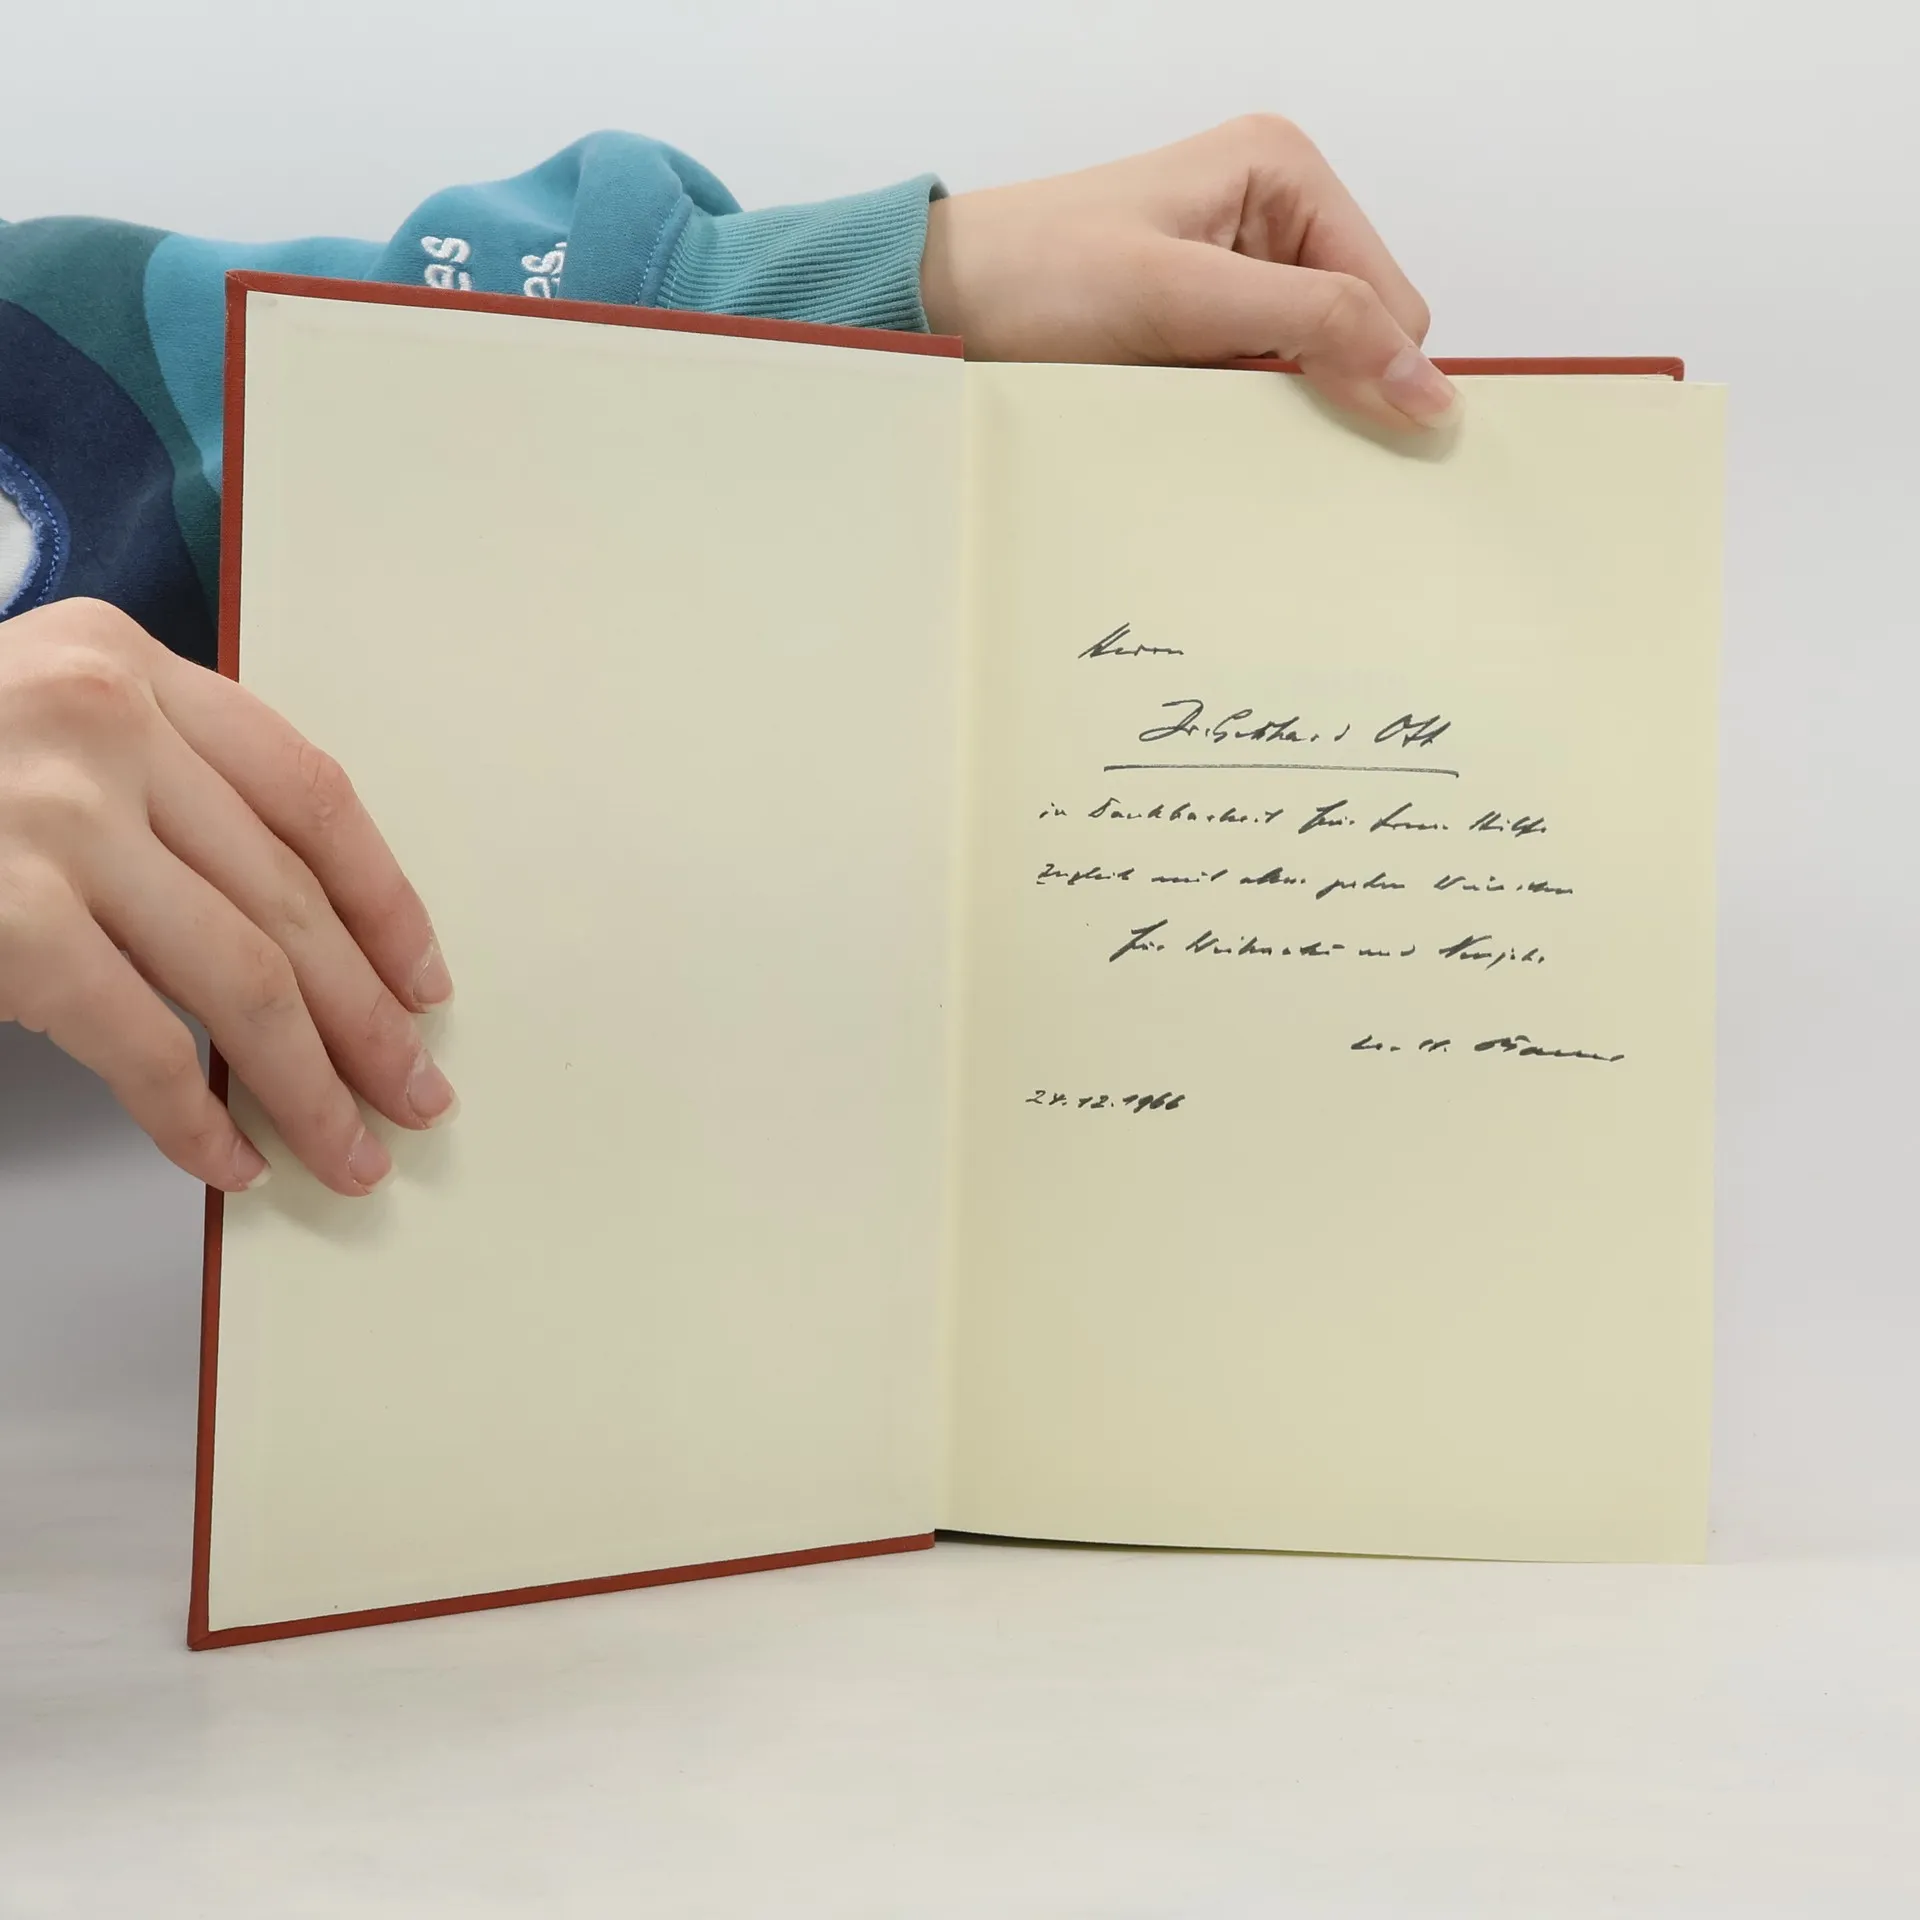 es
es.
Herrn
Dr. Gebhard Ott
in Dankbarkeit für Ihre Hilfe
zugleich mit allen guten Wünschen
für Weihnachten und Neujahr
24.12.1966